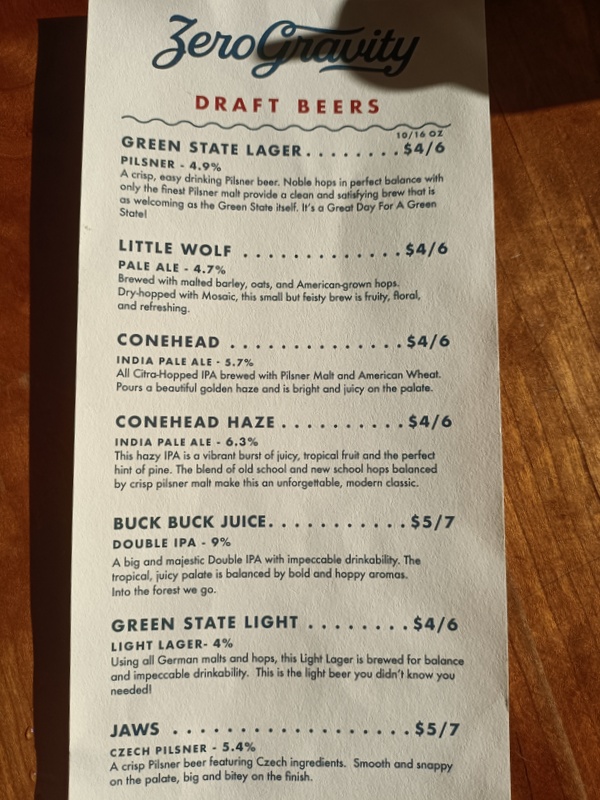 ZeroGravity
DRAFT BEERS
10/16 OZ
GREEN STATE LAGER........$4/6
PILSNER - 4.9%
A crisp, easy drinking Pilsner beer. Noble hops in perfect balance with
only the finest Pilsner malt provide a clean and satisfying brew that is
as welcoming as the Green State itself. It's a Great Day For A Green
State!
LITTLE WOLF .............$4/6
PALE ALE - 4.7%
Brewed with malted barley, oats, and American-grown hops.
Dry-hopped with Mosaic, this small but feisty brew is fruity, floral,
and refreshing.
CONEHEAD ..............$4/6
INDIA PALE ALE - 5.7%
All Citra-Hopped IPA brewed with Pilsner Malt and American Wheat.
Pours a beautiful golden haze and is bright and juicy on the palate.
CONEHEAD HAZE ..........$4/6
INDIA PALE ALE - 6.3%
This hazy IPA is a vibrant burst of juicy, tropical fruit and the perfect
hint of pine. The blend of old school and new school hops balanced
by crisp pilsner malt make this an unforgettable, modern classic.
BUCK BUCK JUICE...........$5/7
DOUBLE IPA - 9%
A big and majestic Double IPA with impeccable drinkability. The
tropical, juicy palate is balanced by bold and hoppy aromas.
Into the forest we go.
GREEN STATE LIGHT ........$4/6
LIGHT LAGER- 4%
Using all German malts and hops, this Light Lager is brewed for balance
and impeccable drinkability. This is the light beer you didn't know you
needed!
JAWS ...................$5/7
CZECH PILSNER - 5.4%
A crisp Pilsner beer featuring Czech ingredients. Smooth and snappy
on the palate, big and bitey on the finish.